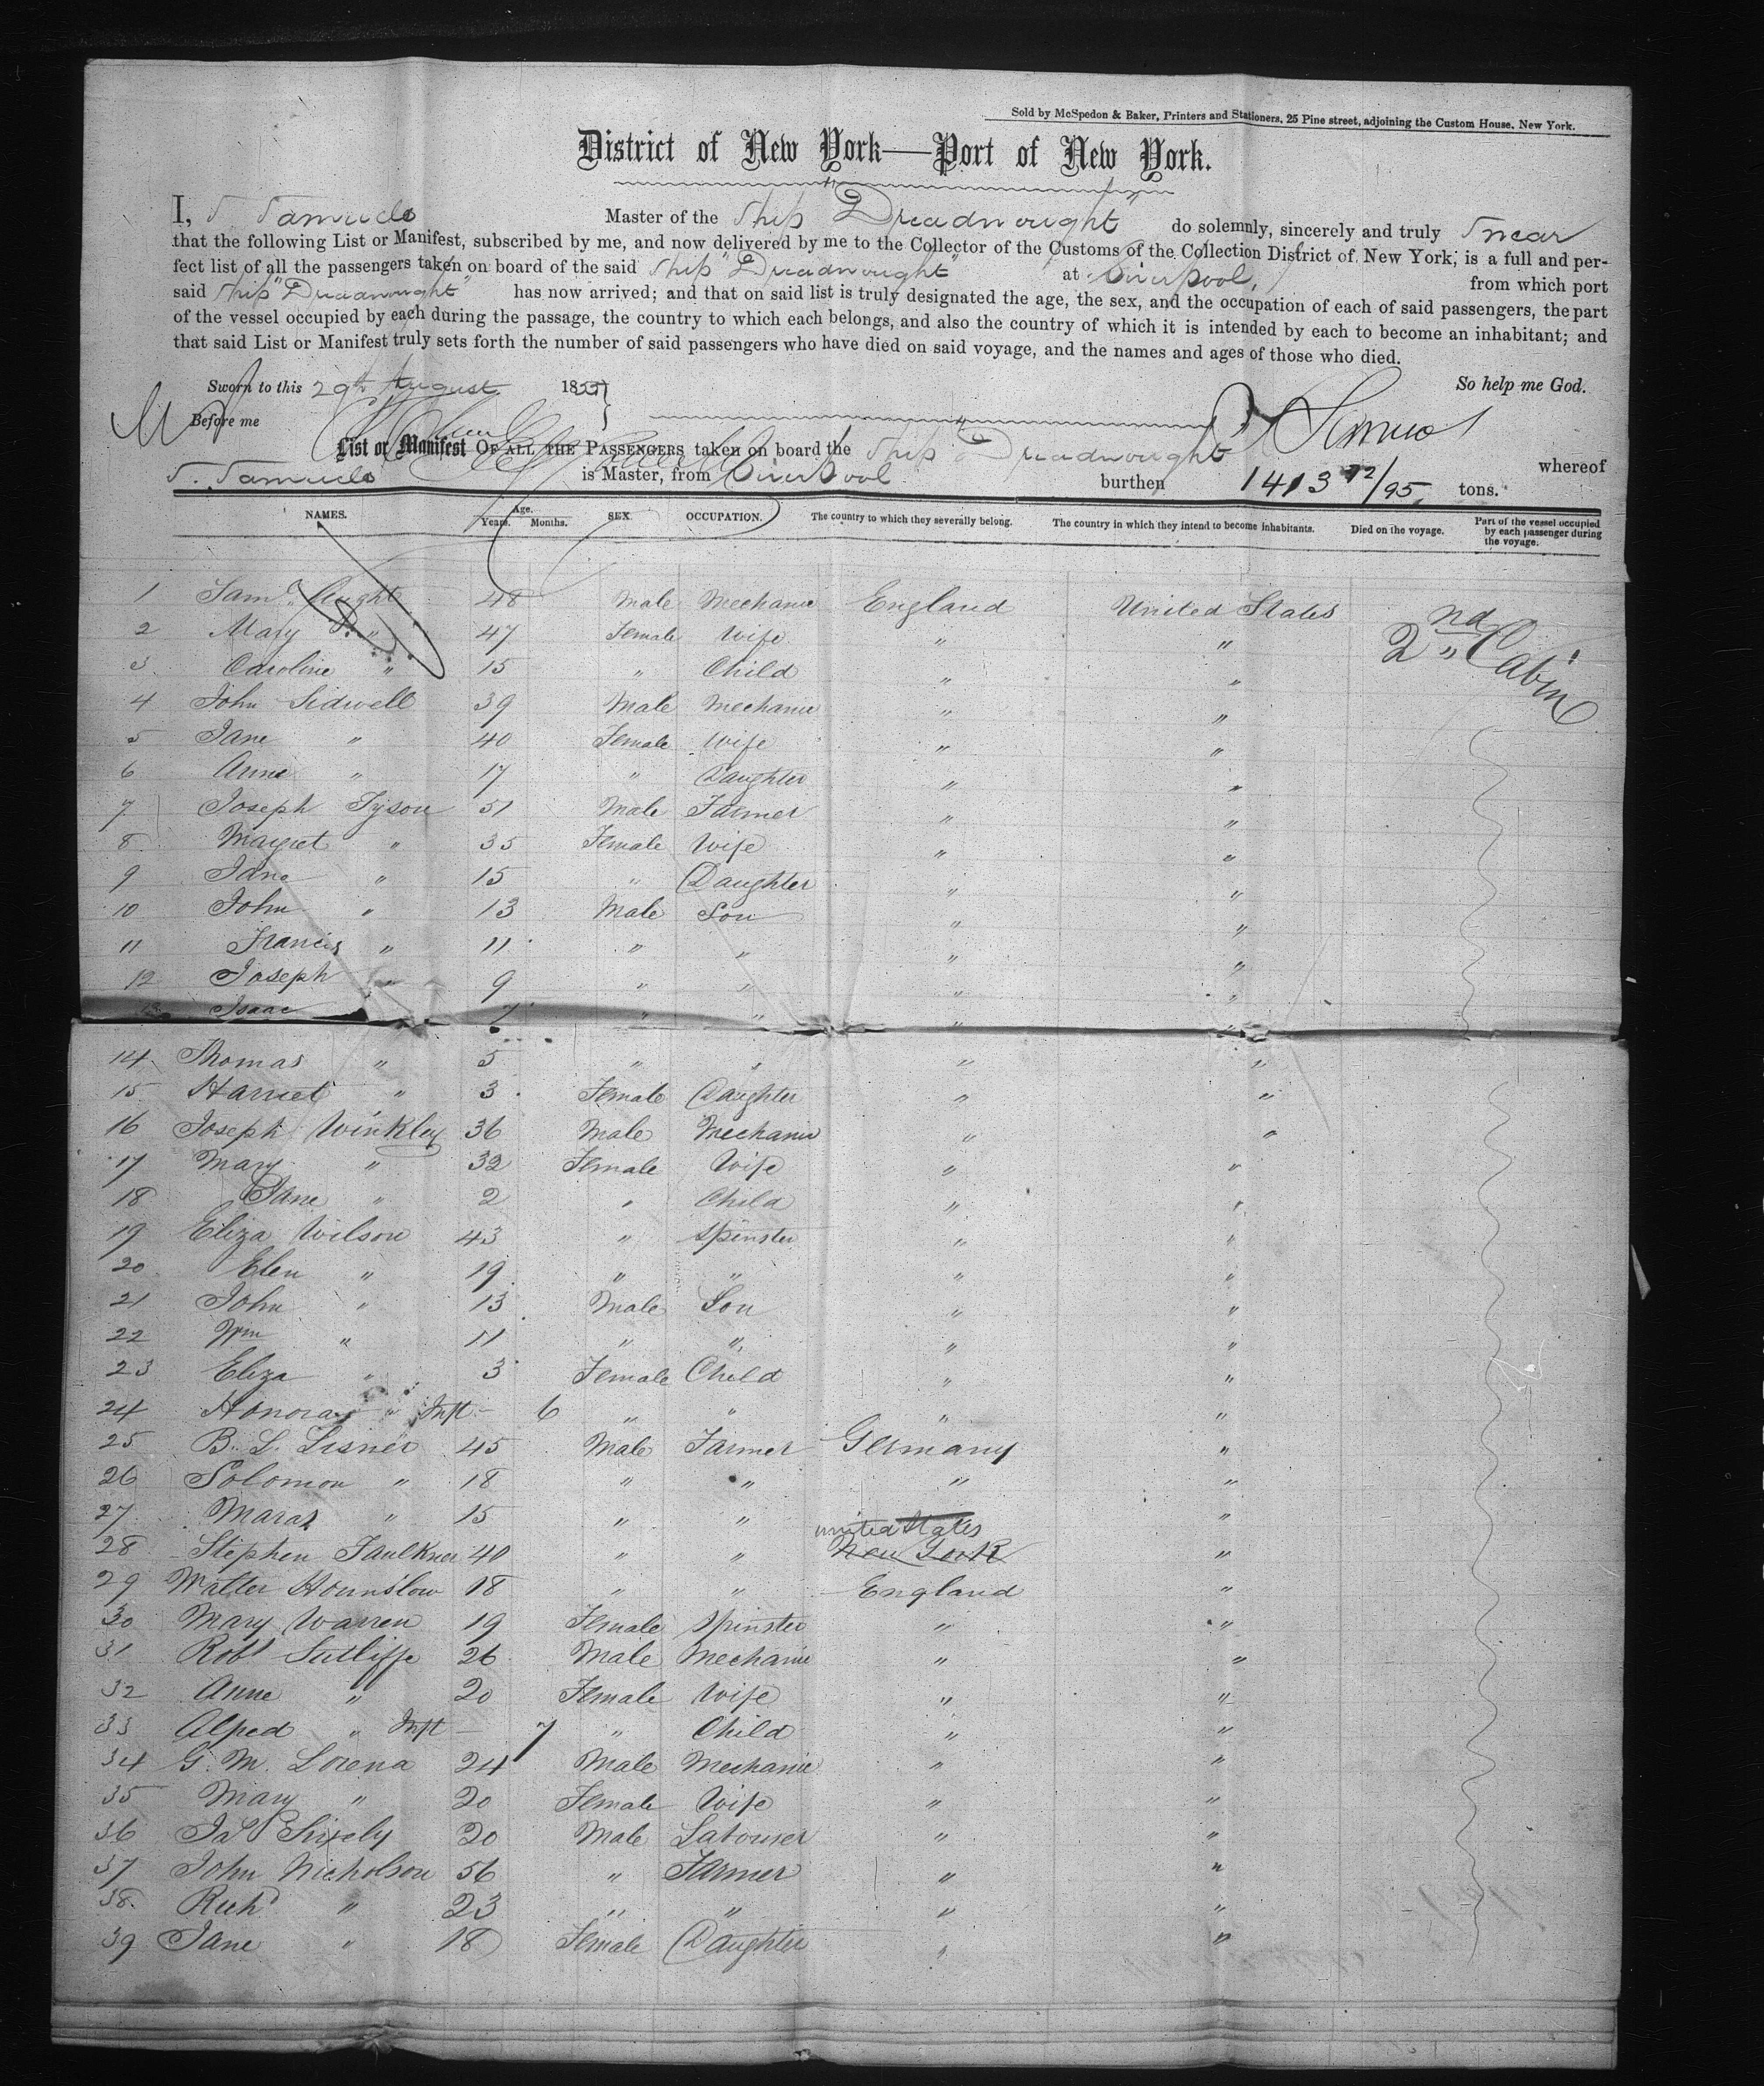 Sold by McSpedon & Baker, Printers and Stationers, 25 Pine street, adjoining the Custom House, New York.
District of New York—Port of New York.
I, S Samuels Master of the Ship "Dreadnought" do solemnly, sincerely and truly Swear
that the following List or Manifest, subscribed by me, and now delivered by me to the Collector of the Customs of the Collection District of New York, is a full and per-
fect list of all the passengers taken on board of the said Ship "Dreadnought" at Liverpool, from which port
said Ship "Dreadnought" has now arrived; and that on said list is truly designated the age, the sex, and the occupation of each of said passengers, the part
of the vessel occupied by each during the passage, the country to which each belongs, and also the country of which it is intended by each to become an inhabitant; and
that said List or Manifest truly sets forth the number of said passengers who have died on said voyage, and the names and ages of those who died.
Sworn to this 29th August 1855 So help me God.
Before me S Samuels
List or Manifest OF ALL THE PASSENGERS taken on board the Ship "Dreadnought" whereof
S. Samuels is Master, from Liverpool burthen 1413 72/95 tons.
NAMES. Age. Years. Months. SEX. OCCUPATION. The country to which they severally belong. The country in which they intend to become inhabitants. Died on the voyage. Part of the vessel occupied by each passenger during the voyage.
1 Saml 48 Male Mechanic England United States 2nd Cabin
2 Mary " 47 Female Wife " "
3 Caroline " 15 " Child " "
4 John Sidwell 39 Male Mechanic " "
5 Jane " 40 Female Wife " "
6 Anne " 17 " Daughter " "
7 Joseph Tyson 51 Male Farmer " "
8 Magret " 35 Female Wife " "
9 Jane " 15 " Daughter " "
10 John " 13 Male Son " "
11 Francis " 11 " " " "
12 Joseph " 9 " " " "
13 Isaac 7 " " " "
14 Thomas " 5 " " " "
15 Harriet " 3 Female Daughter " "
16 Joseph Winkley 36 Male Mechanic " "
17 Mary " 32 Female Wife " "
18 Jane " 2 " Child " "
19 Eliza Wilson 43 " Spinster " "
20 Elen " 19 " " " "
21 John " 13 Male Son " "
22 Wm " 11 " " " "
23 Eliza " 3 Female Child " "
24 Honora " Inft - 6 " " " "
25 B. L. Lisner 45 Male Farmer Germany "
26 Solomon " 18 " " " "
27 Maras " 15 " " "
28 Stephen Faulkner 40 " " United States New York "
29 Walter Hounslow 18 " " England "
30 Mary Warren 19 Female Spinster " "
31 Robt Sutliffe 26 Male Mechanic " "
32 Anne " 20 Female Wife " "
33 Alfred " Inft - 7 " Child " "
34 G. M. Lorena 24 Male Mechanic " "
35 Mary " 20 Female Wife " "
36 Jas 20 Male Labourer " "
37 John Nicholson 56 " Farmer " "
38 Richd " 23 " " " "
39 Jane " 18 Female Daughter " "